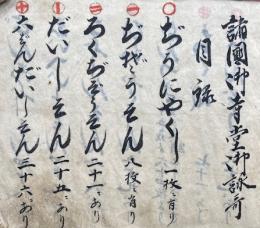 諸國御寺堂御詠哥
目録
○ ぢうにやくし 一枚ニ有り
一 ぢぞうそん 八枚ニ有り
二 ろくぢぞうそん 二十一ニあり
㊀ だいしそん 二十五ニあり
㊉ 六だんだいしそん 三十六ニあり